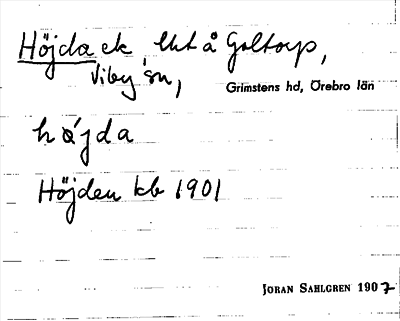 Höjda ek lht å Galtorp,
Viby sn,
Grimstens hd, Örebro län
höjda
Höjden kb 1901
JÖRAN SAHLGREN 1907